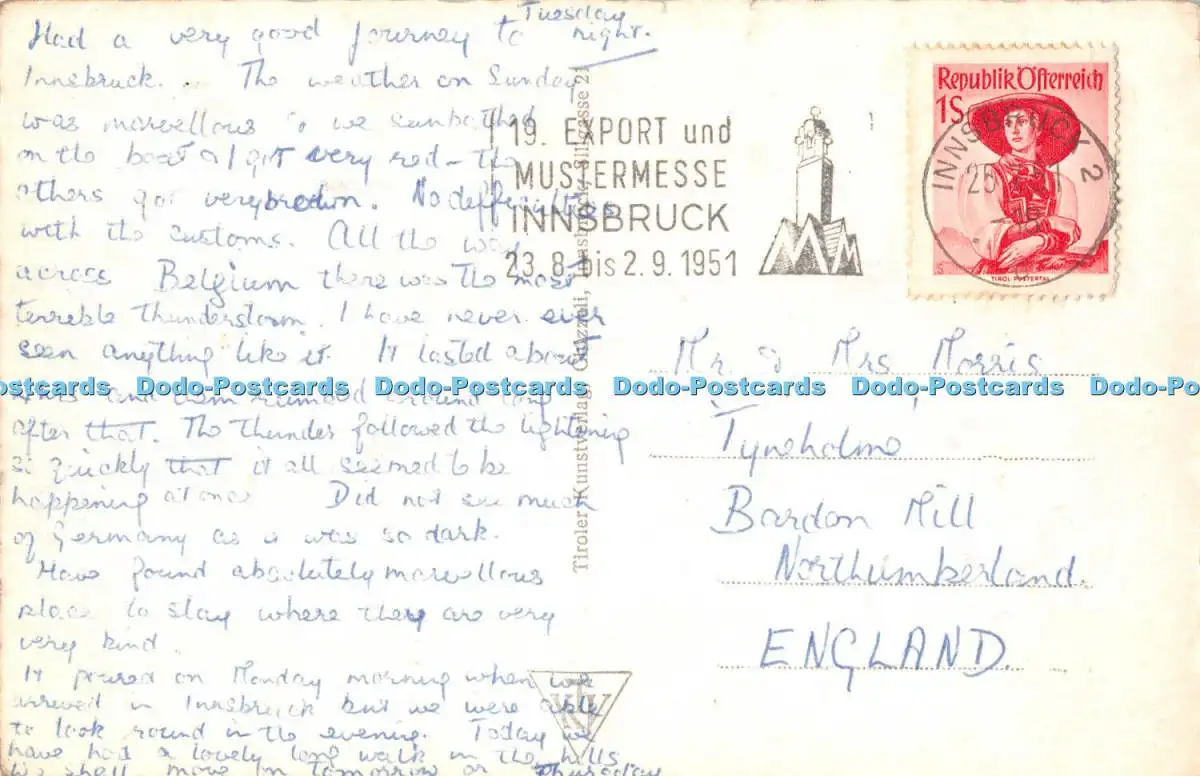 Tuesday
night.
Had a very good journey to
Innsbruck. The weather on Sunday
was marvellous & we sunbathed
on the boat & I got very red - the
others got very brown. No difficulties
with the customs. All the way
across Belgium there was the most
terrible thunderstorm. I have never ever
seen anything like it. It lasted about
and rumbled around long
after that. The thunder followed the lightening
so quickly that it all seemed to be
happening at once Did not see much
of Germany as it was so dark.
Have found absolutely marvellous
place to stay where they are very
very kind.
It poured on Monday morning when we
arrived in Innsbruck but we were able
to look round in the evening. Today we
have had a lovely long walk in the hills
We shall move on tomorrow or Thursday
19. EXPORT und
MUSTERMESSE
INNSBRUCK
23.8. bis 2.9. 1951
Republik Österreich
1S
TIROL PUSTERTAL
INNSBRUCK 2
Tiroler Kunstverlag Innsbruck, Sillgasse 21
Mr. & Mrs. Morris
Tyneholme
Bardon Mill
Northumberland.
ENGLAND.
Dodo-Postcards Dodo-Postcards Dodo-Postcards Dodo-Postcards Dodo-Postcards